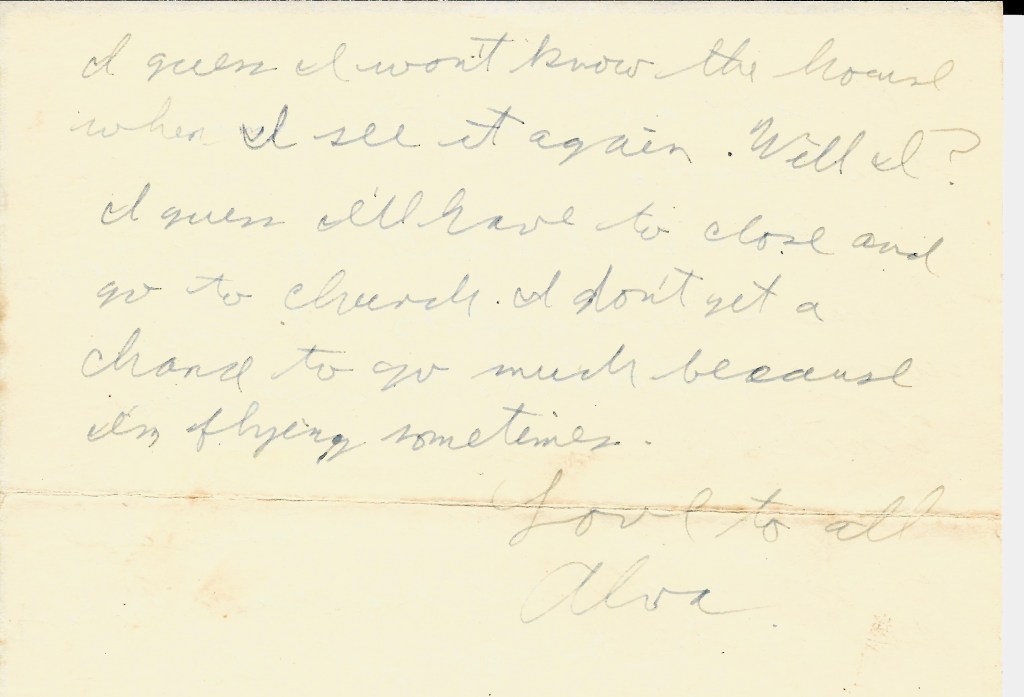 I guess I won't know the house
when I see it again. Will I?
I guess I'll have to close and
go to church. I don't get a
chance to go much because
I'm flying sometimes.
Love to all
Alva